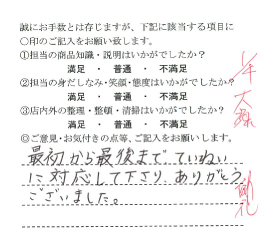 誠にお手数とは存じますが、下記に該当する項目に
○印のご記入をお願い致します。
①担当の商品知識・説明はいかがでしたか？
満足 ・ 普通 ・ 不満足
②担当の身だしなみ・笑顔・態度はいかがでしたか？
満足 ・ 普通 ・ 不満足
③店内外の整理・整頓・清掃はいかがでしたか？
満足 ・ 普通 ・ 不満足
◎ご意見・お気付きの点等、ご記入をお願いします。
最初から最後までていねい
に対応して下さり、ありがとう
ございました。